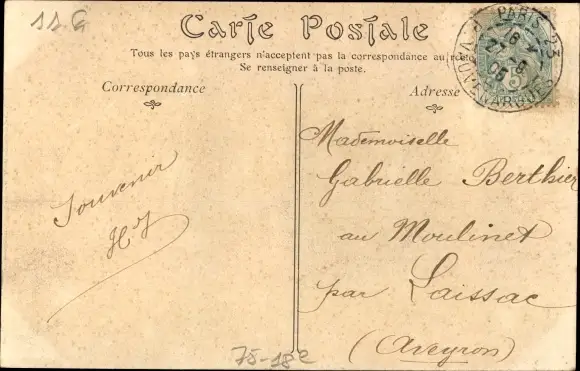 11.G
Carte Postale
Tous les pays étrangers n'acceptent pas la correspondance au recto
Se renseigner à la poste.
Correspondance
Adresse
PARIS 23
R. VAUVENARGUES
5
Souvenir
Mademoiselle
Gabrielle Berthier
au Moulinet
par Laissac
(Aveyron)
75-18e